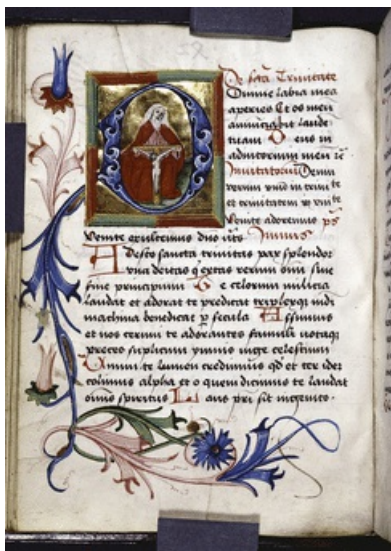 De sctā Trinitate
Domine labia mea
aperies Et os meū
annūciabit laudē
tuam Deus in
adiutorium meū īt
Invitatoriū Deum
verum unū in trinite
et trinitatem in unite
Venite adoremus ps
Venite exultemus dno Ymnus
Adesto sancta trinitas par splendor
una deitas q extas rerum omī sine
fine principium Te celorum militia
laudat et adorat te predicat triplexq mūdi
machina benedicat p secula Assumus
et nos cernui te adorantes famuli votaq
preces suplicum ymnis iunge celestium
Unum te lumen credimus qd et ter idem
colimus alpha et o quem dicimus te laudat
omīs spiritus Laus pri sit ingenito